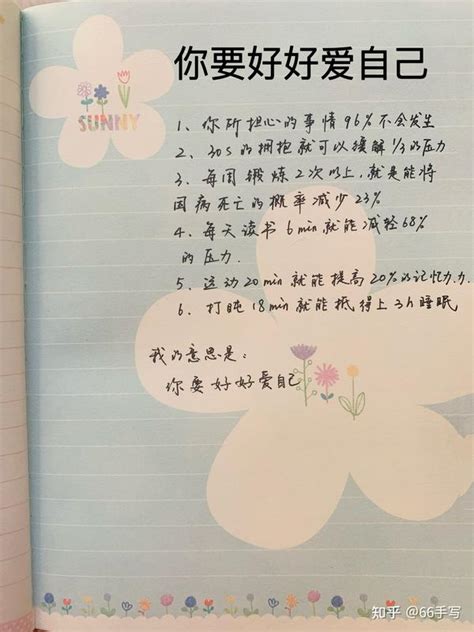 你要好好爱自己
SUNNY
1、你所担心的事情96%不会发生
2、30s的拥抱就可以缓解1/3的压力
3、每周锻炼2次以上,就是能将
因病死亡的概率减少23%
4、每天读书6min就能减轻68%
的压力.
5、运动20min就能提高20%的记忆力.
6、打盹18min就能抵得上3h睡眠
我的意思是:
你要好好爱自己
知乎 @66手写